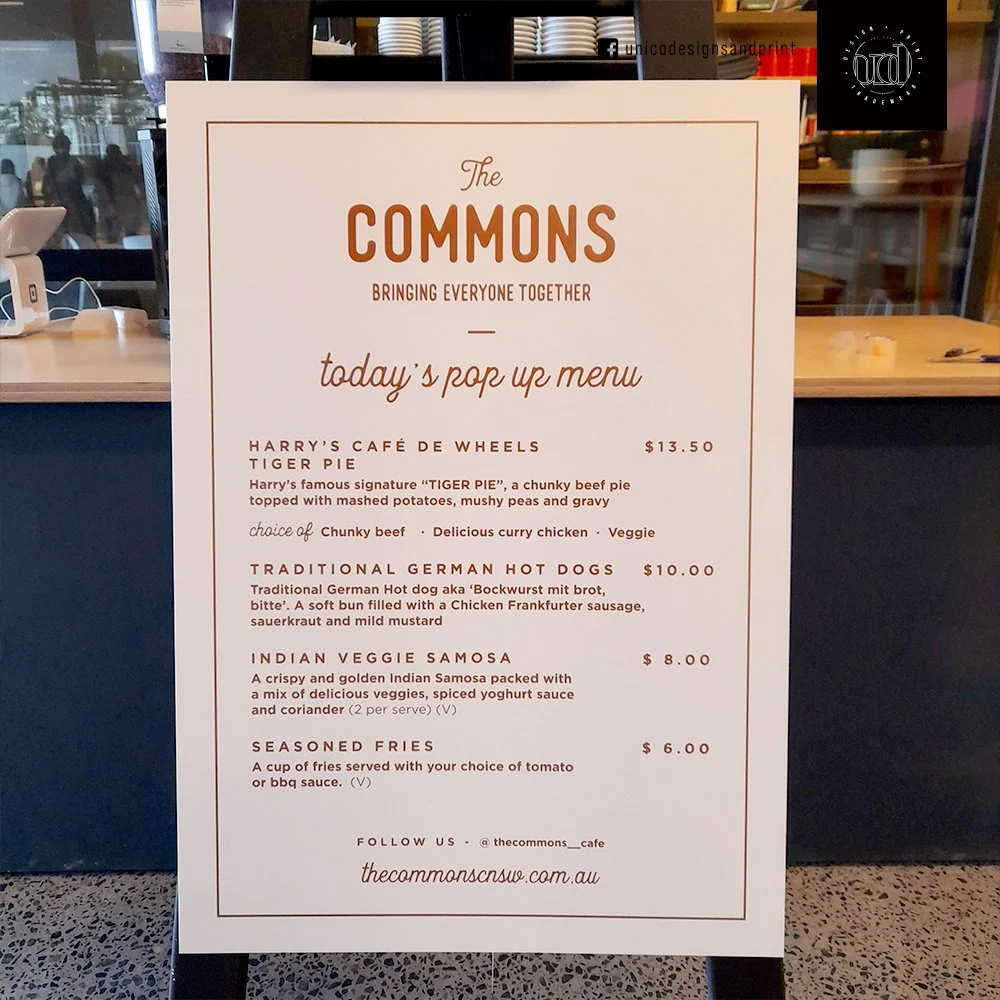 unicodesignsandprint
DESIGN · PRINT
ucd
TRADEWEAR
The
COMMONS
BRINGING EVERYONE TOGETHER
today's pop up menu
HARRY'S CAFÉ DE WHEELS $13.50
TIGER PIE
Harry's famous signature “TIGER PIE”, a chunky beef pie
topped with mashed potatoes, mushy peas and gravy
choice of Chunky beef · Delicious curry chicken · Veggie
TRADITIONAL GERMAN HOT DOGS $10.00
Traditional German Hot dog aka ‘Bockwurst mit brot,
bitte’. A soft bun filled with a Chicken Frankfurter sausage,
sauerkraut and mild mustard
INDIAN VEGGIE SAMOSA $ 8.00
A crispy and golden Indian Samosa packed with
a mix of delicious veggies, spiced yoghurt sauce
and coriander (2 per serve) (V)
SEASONED FRIES $ 6.00
A cup of fries served with your choice of tomato
or bbq sauce. (V)
FOLLOW US - @thecommons__cafe
thecommonscnsw.com.au